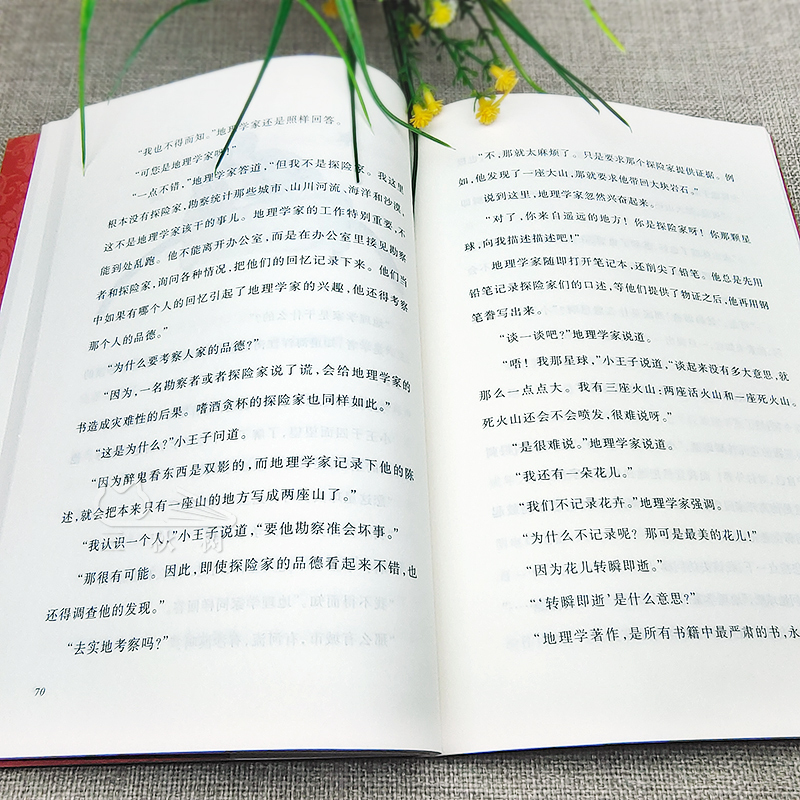 “我也不得而知。”地理学家还是照样回答。
“可您是地理学家呀！”
“一点不错，”地理学家答道，“但我不是探险家。我这里
根本没有探险家，勘察统计那些城市、山川河流、海洋和沙漠，
这不是地理学家该干的事儿。地理学家的工作特别重要，不
能到处乱跑。他不能离开办公室，而是在办公室里接见勘察
者和探险家，询问各种情况，把他们的回忆记录下来。他们当
中如果有哪个人的回忆引起了地理学家的兴趣，他还得考察
那个人的品德。”
“为什么要考察人家的品德？”
“因为，一名勘察者或者探险家说了谎，会给地理学家的
书造成灾难性的后果。嗜酒贪杯的探险家也同样如此。”
“这是为什么？”小王子问道。
“因为醉鬼看东西是双影的，而地理学家记录下他的陈
述，就会把本来只有一座山的地方写成两座山了。”
“我认识一个人，”小王子说道，“要他勘察准会坏事。”
“那很有可能。因此，即使探险家的品德看起来不错，也
还得调查他的发现。”
“去实地考察吗？”
70
“不，那就太麻烦了。只是要求那个探险家提供证据。例
如，他发现了一座大山，那就要求他带回大块岩石。”
说到这里，地理学家忽然兴奋起来。
“对了，你来自遥远的地方！你是探险家呀！你那颗星
球，向我描述描述吧！”
地理学家随即打开笔记本，还削尖了铅笔。他总是先用
铅笔记录探险家们的口述，等他们提供了物证之后，他再用钢
笔誊写出来。
“谈一谈吧？”地理学家说道。
“唔！我那星球，”小王子说道，“谈起来没有多大意思，就
那么一点点大。我有三座火山；两座活火山和一座死火山。
死火山还会不会喷发，很难说呀。”
“是很难说。”地理学家说道。
“我还有一朵花儿。”
“我们不记录花卉。”地理学家强调。
“为什么不记录呢？那可是最美的花儿！”
“因为花儿转瞬即逝。”
“‘转瞬即逝’是什么意思？”
“地理学著作，是所有书籍中最严肃的书，永